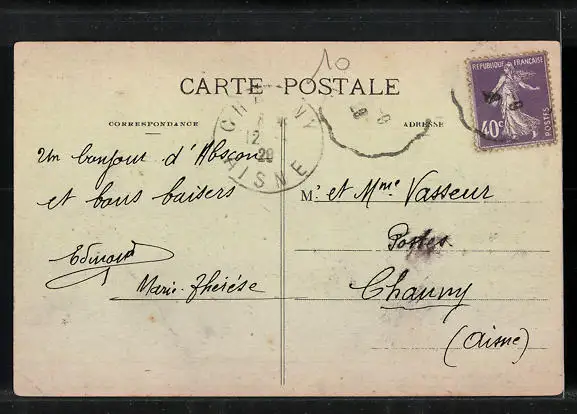 10
CARTE POSTALE
CORRESPONDANCE
ADRESSE
REPUBLIQUE FRANÇAISE
40c
POSTES
CHAUNY
12
29
AISNE
Un bonjour d'Abscon
et bons baisers
Edmond
Marie-Thérèse
Mr et Mme Vasseur
Postes
Chauny
(Aisne)